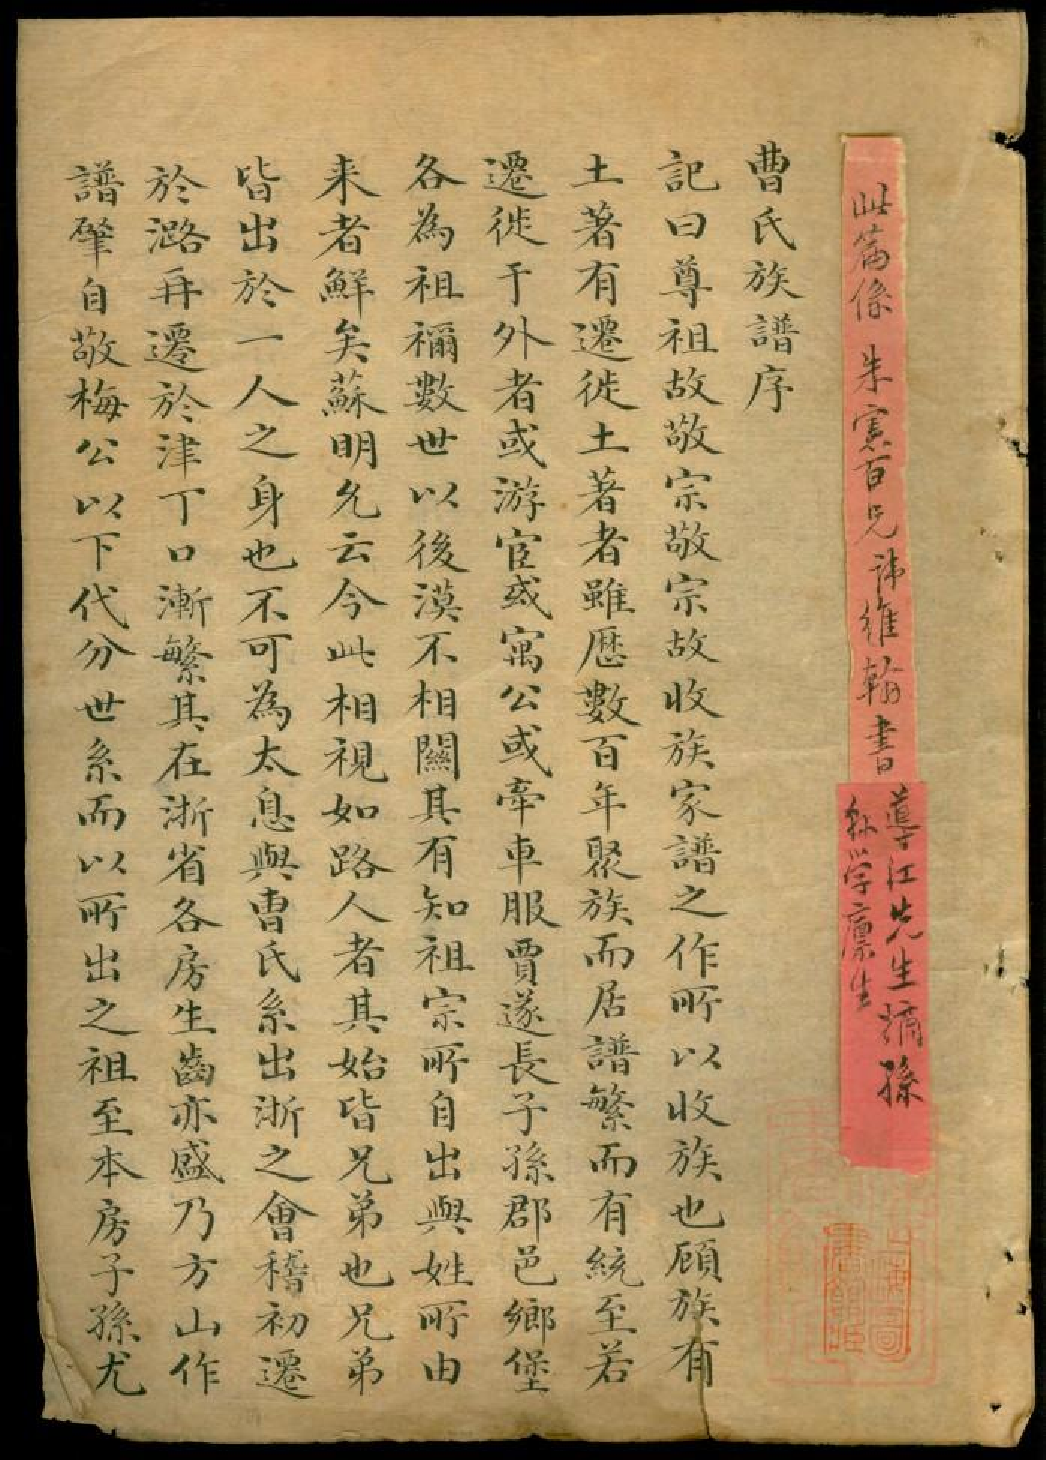 此篇係 朱憲百兄諱維翰書
導江先生嫡孫
縣学廪生
曹氏族譜序
記曰尊祖故敬宗敬宗故收族家譜之作所以收族也顧族有
土著有遷徙土著者雖歷數百年聚族而居譜繁而有統至若
遷徙于外者或游宦或寓公或牽車服賈遂長子孫郡邑鄉堡
各為祖禰數世以後漠不相關其有知祖宗所自出與姓所由
来者鮮矣蘇明允云今此相視如路人者其始皆兄弟也兄弟
皆出於一人之身也不可為太息與曹氏系出浙之會稽初遷
於潞再遷於津丁口漸繁其在浙省各房生齒亦盛乃方山作
譜肇自敬梅公以下代分世系而以所出之祖至本房子孫尤